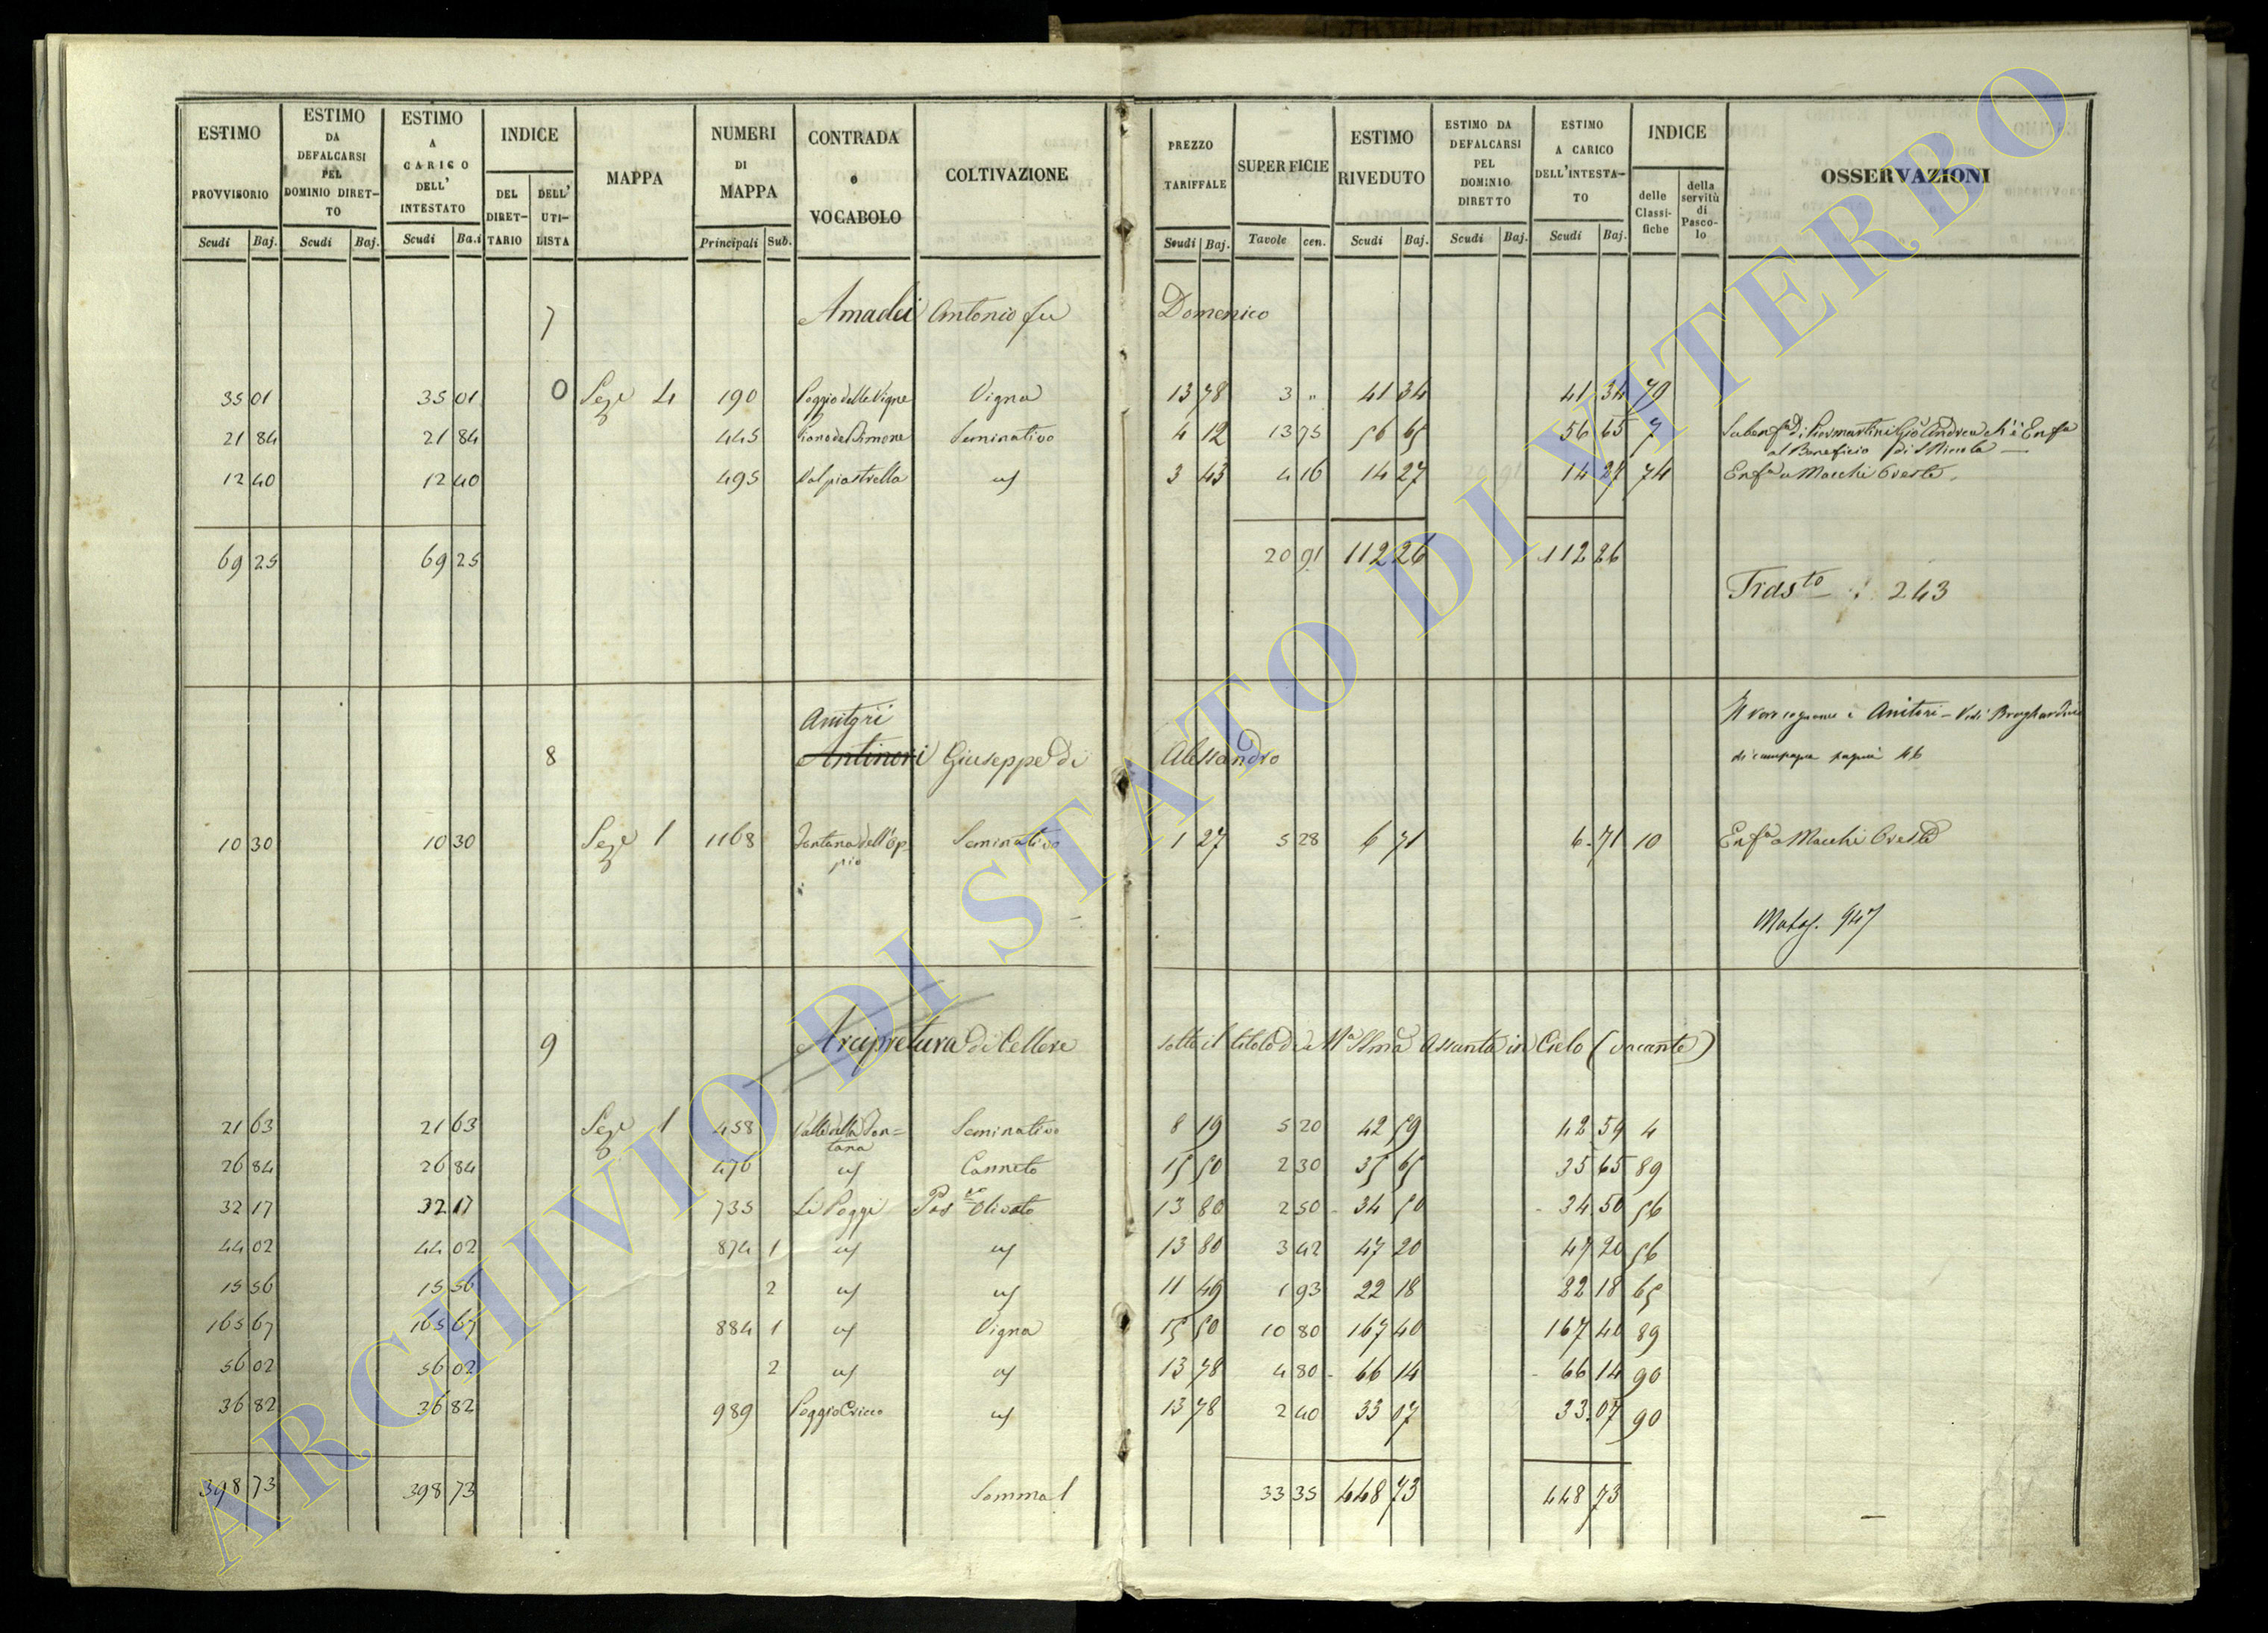 ESTIMO PROVVISORIO Scudi Baj.
ESTIMO DA DEFALCARSI PEL DOMINIO DIRET-TO Scudi Baj.
ESTIMO A CARICO DELL' INTESTATO Scudi Ba.i
INDICE DEL DIRET-TARIO DELL' UTI-LISTA
MAPPA
NUMERI DI MAPPA Principali Sub.
CONTRADA o VOCABOLO
COLTIVAZIONE
PREZZO TARIFFALE Scudi Baj.
SUPERFICIE Tavole cen.
ESTIMO RIVEDUTO Scudi Baj.
ESTIMO DA DEFALCARSI PEL DOMINIO DIRETTO Scudi Baj.
ESTIMO A CARICO DELL'INTESTA-TO Scudi Baj.
INDICE delle Classi-fiche della servitù di Pasco-lo
OSSERVAZIONI
7 Amadei Antonio fu Domenico
35 01 35 01 0 Seze 4 190 Poggio delle Vigne Vigna 13 78 3 " 41 34 41 34 79
21 84 21 84 445 Piano del Simone Seminativo 4 12 13 75 56 65 56 65 7 Andrea ch'è Enfa
al Beneficio di S Niccola
12 40 12 40 495 Valpiastrella 3 43 4 16 14 27 14 27 74 Enfa a Macchi Oreste
69 25 69 25 20 91 112 26 112 26
Trasto : 243
Anitori Il vero cognome è Anitori - Vedi
8 Antinori Giuseppe di Alessandro di campagna pagina 46
10 30 10 30 Seze 1 1168 Fontana dell'Op-pio Seminativo 1 27 5 28 6 71 6 71 10 Enfa a Macchi Oreste
947
9 Arcipretura di Cellere sotto il titolo di Ma SSma Assunta in Cielo (vacante)
21 63 21 63 Seze 1 458 Valle della Fon=tana Seminativo 8 19 5 20 42 59 42 59 4
26 84 26 84 476 Canneto 15 50 2 30 35 65 35 65 89
32 17 32 17 735 Li Poggi Pasvo Olivato 13 80 2 50 34 50 34 50 56
44 02 44 02 874 1 13 80 3 42 47 20 47 20 56
15 56 15 56 2 11 49 1 93 22 18 22 18 65
165 67 165 67 884 1 Vigna 15 50 10 80 167 40 167 40 89
56 02 56 02 2 13 78 4 80 66 14 66 14 90
36 82 36 82 989 Poggio Cricco 13 78 2 40 33 07 33 07 90
398 73 398 73 Somma 33 35 448 73 448 73
ARCHIVIO DI STATO DI VITERBO